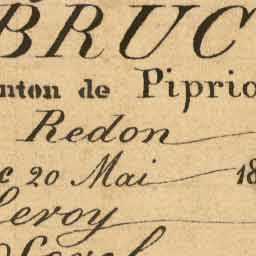 BRUC
nton de Piprio
Redon
c 20 Mai 18
Leroy